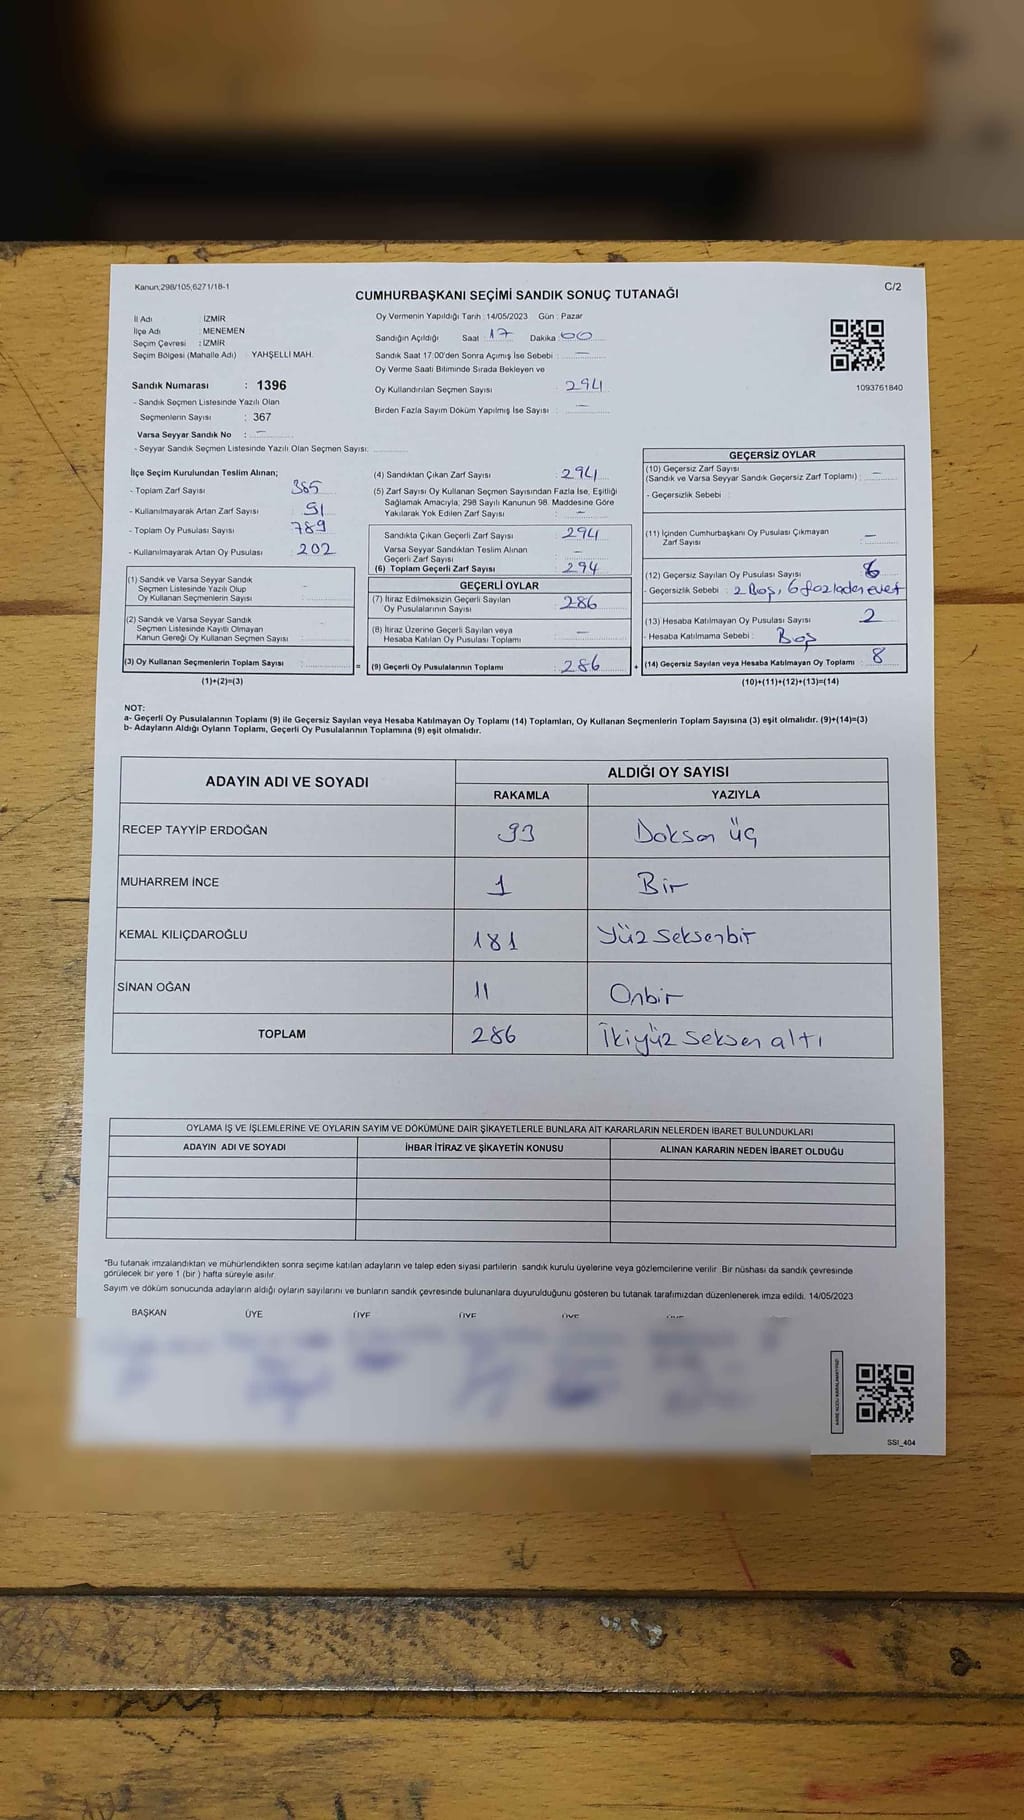 Kanun;298/105,6271/18-1
C/2
CUMHURBAŞKANI SEÇİMİ SANDIK SONUÇ TUTANAĞI
İl Adı : İZMİR
İlçe Adı : MENEMEN
Seçim Çevresi : İZMİR
Seçim Bölgesi (Mahalle Adı) : YAHŞELLİ MAH.
Sandık Numarası : 1396
- Sandık Seçmen Listesinde Yazılı Olan
Seçmenlerin Sayısı : 367
Varsa Seyyar Sandık No : –
- Seyyar Sandık Seçmen Listesinde Yazılı Olan Seçmen Sayısı:
Oy Vermenin Yapıldığı Tarih : 14/05/2023 Gün : Pazar
Sandığın Açıldığı Saat 17 Dakika 00
Sandık Saat 17:00'den Sonra Açımış İse Sebebi : –
Oy Verme Saati Bitiminde Sırada Bekleyen ve
Oy Kullandırılan Seçmen Sayısı : 294
Birden Fazla Sayım Döküm Yapılmış İse Sayısı : –
1093761840
İlçe Seçim Kurulundan Teslim Alınan;
- Toplam Zarf Sayısı : 385
- Kullanılmayarak Artan Zarf Sayısı : 91
- Toplam Oy Pusulası Sayısı : 789
- Kullanılmayarak Artan Oy Pusulası : 202
(1) Sandık ve Varsa Seyyar Sandık
Seçmen Listesinde Yazılı Olup
Oy Kullanan Seçmenlerin Sayısı :
(2) Sandık ve Varsa Seyyar Sandık
Seçmen Listesinde Kayıtlı Olmayan
Kanun Gereği Oy Kullanan Seçmen Sayısı :
(3) Oy Kullanan Seçmenlerin Toplam Sayısı :
(1)+(2)=(3)
(4) Sandıktan Çıkan Zarf Sayısı : 294
(5) Zarf Sayısı Oy Kullanan Seçmen Sayısından Fazla İse, Eşitliği
Sağlamak Amacıyla; 298 Sayılı Kanunun 98. Maddesine Göre
Yakılarak Yok Edilen Zarf Sayısı : –
Sandıkta Çıkan Geçerli Zarf Sayısı : 294
Varsa Seyyar Sandıktan Teslim Alınan
Geçerli Zarf Sayısı : –
(6) Toplam Geçerli Zarf Sayısı : 294
GEÇERLİ OYLAR
(7) İtiraz Edilmeksizin Geçerli Sayılan
Oy Pusulalarının Sayısı : 286
(8) İtiraz Üzerine Geçerli Sayılan veya
Hesaba Katılan Oy Pusulası Toplamı : –
= (9) Geçerli Oy Pusulalarının Toplamı : 286 +
GEÇERSİZ OYLAR
(10) Geçersiz Zarf Sayısı
(Sandık ve Varsa Seyyar Sandık Geçersiz Zarf Toplamı) : –
- Geçersizlik Sebebi :
(11) İçinden Cumhurbaşkanı Oy Pusulası Çıkmayan
Zarf Sayısı : –
(12) Geçersiz Sayılan Oy Pusulası Sayısı : 6
- Geçersizlik Sebebi : 2 Boş, 6 fazladan evet
(13) Hesaba Katılmayan Oy Pusulası Sayısı : 2
- Hesaba Katılmama Sebebi : Boş
(14) Geçersiz Sayılan veya Hesaba Katılmayan Oy Toplamı : 8
(10)+(11)+(12)+(13)=(14)
NOT:
a- Geçerli Oy Pusulalarının Toplamı (9) ile Geçersiz Sayılan veya Hesaba Katılmayan Oy Toplamı (14) Toplamları, Oy Kullanan Seçmenlerin Toplam Sayısına (3) eşit olmalıdır. (9)+(14)=(3)
b- Adayların Aldığı Oyların Toplamı, Geçerli Oy Pusulalarının Toplamına (9) eşit olmalıdır.
ADAYIN ADI VE SOYADI
ALDIĞI OY SAYISI
RAKAMLA YAZIYLA
RECEP TAYYİP ERDOĞAN 93 Doksan üç
MUHARREM İNCE 1 Bir
KEMAL KILIÇDAROĞLU 181 Yüz seksenbir
SİNAN OĞAN 11 Onbir
TOPLAM 286 İkiyüz seksen altı
OYLAMA İŞ VE İŞLEMLERİNE VE OYLARIN SAYIM VE DÖKÜMÜNE DAİR ŞİKAYETLERLE BUNLARA AİT KARARLARIN NELERDEN İBARET BULUNDUKLARI
ADAYIN ADI VE SOYADI İHBAR İTİRAZ VE ŞİKAYETİN KONUSU ALINAN KARARIN NEDEN İBARET OLDUĞU
*Bu tutanak imzalandıktan ve mühürlendikten sonra seçime katılan adayların ve talep eden siyasi partilerin sandık kurulu üyelerine veya gözlemcilerine verilir. Bir nüshası da sandık çevresinde
görülecek bir yere 1 (bir ) hafta süreyle asılır.
Sayım ve döküm sonucunda adayların aldığı oyların sayılarını ve bunların sandık çevresinde bulunanlara duyurulduğunu gösteren bu tutanak tarafımızdan düzenlenerek imza edildi. 14/05/2023
BAŞKAN ÜYE ÜYE ÜYE ÜYE ÜYE
SSI_404